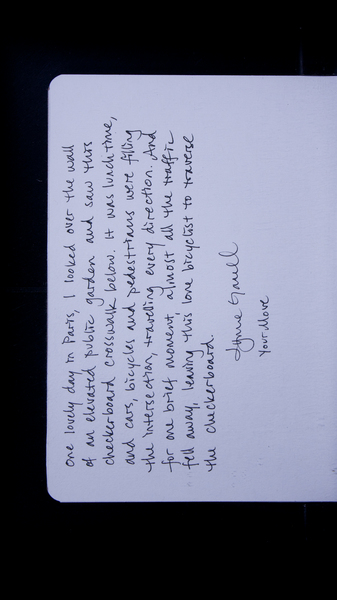 One lovely day in Paris, I looked over the wall
of an elevated public garden and saw this
checkerboard crosswalk below. It was lunchtime,
and cars, bicycles and pedestrians were filling
the intersection, travelling every direction. And
for one brief moment, almost all the traffic
fell away, leaving this lone bicyclist to traverse
the checkerboard.
Your Move